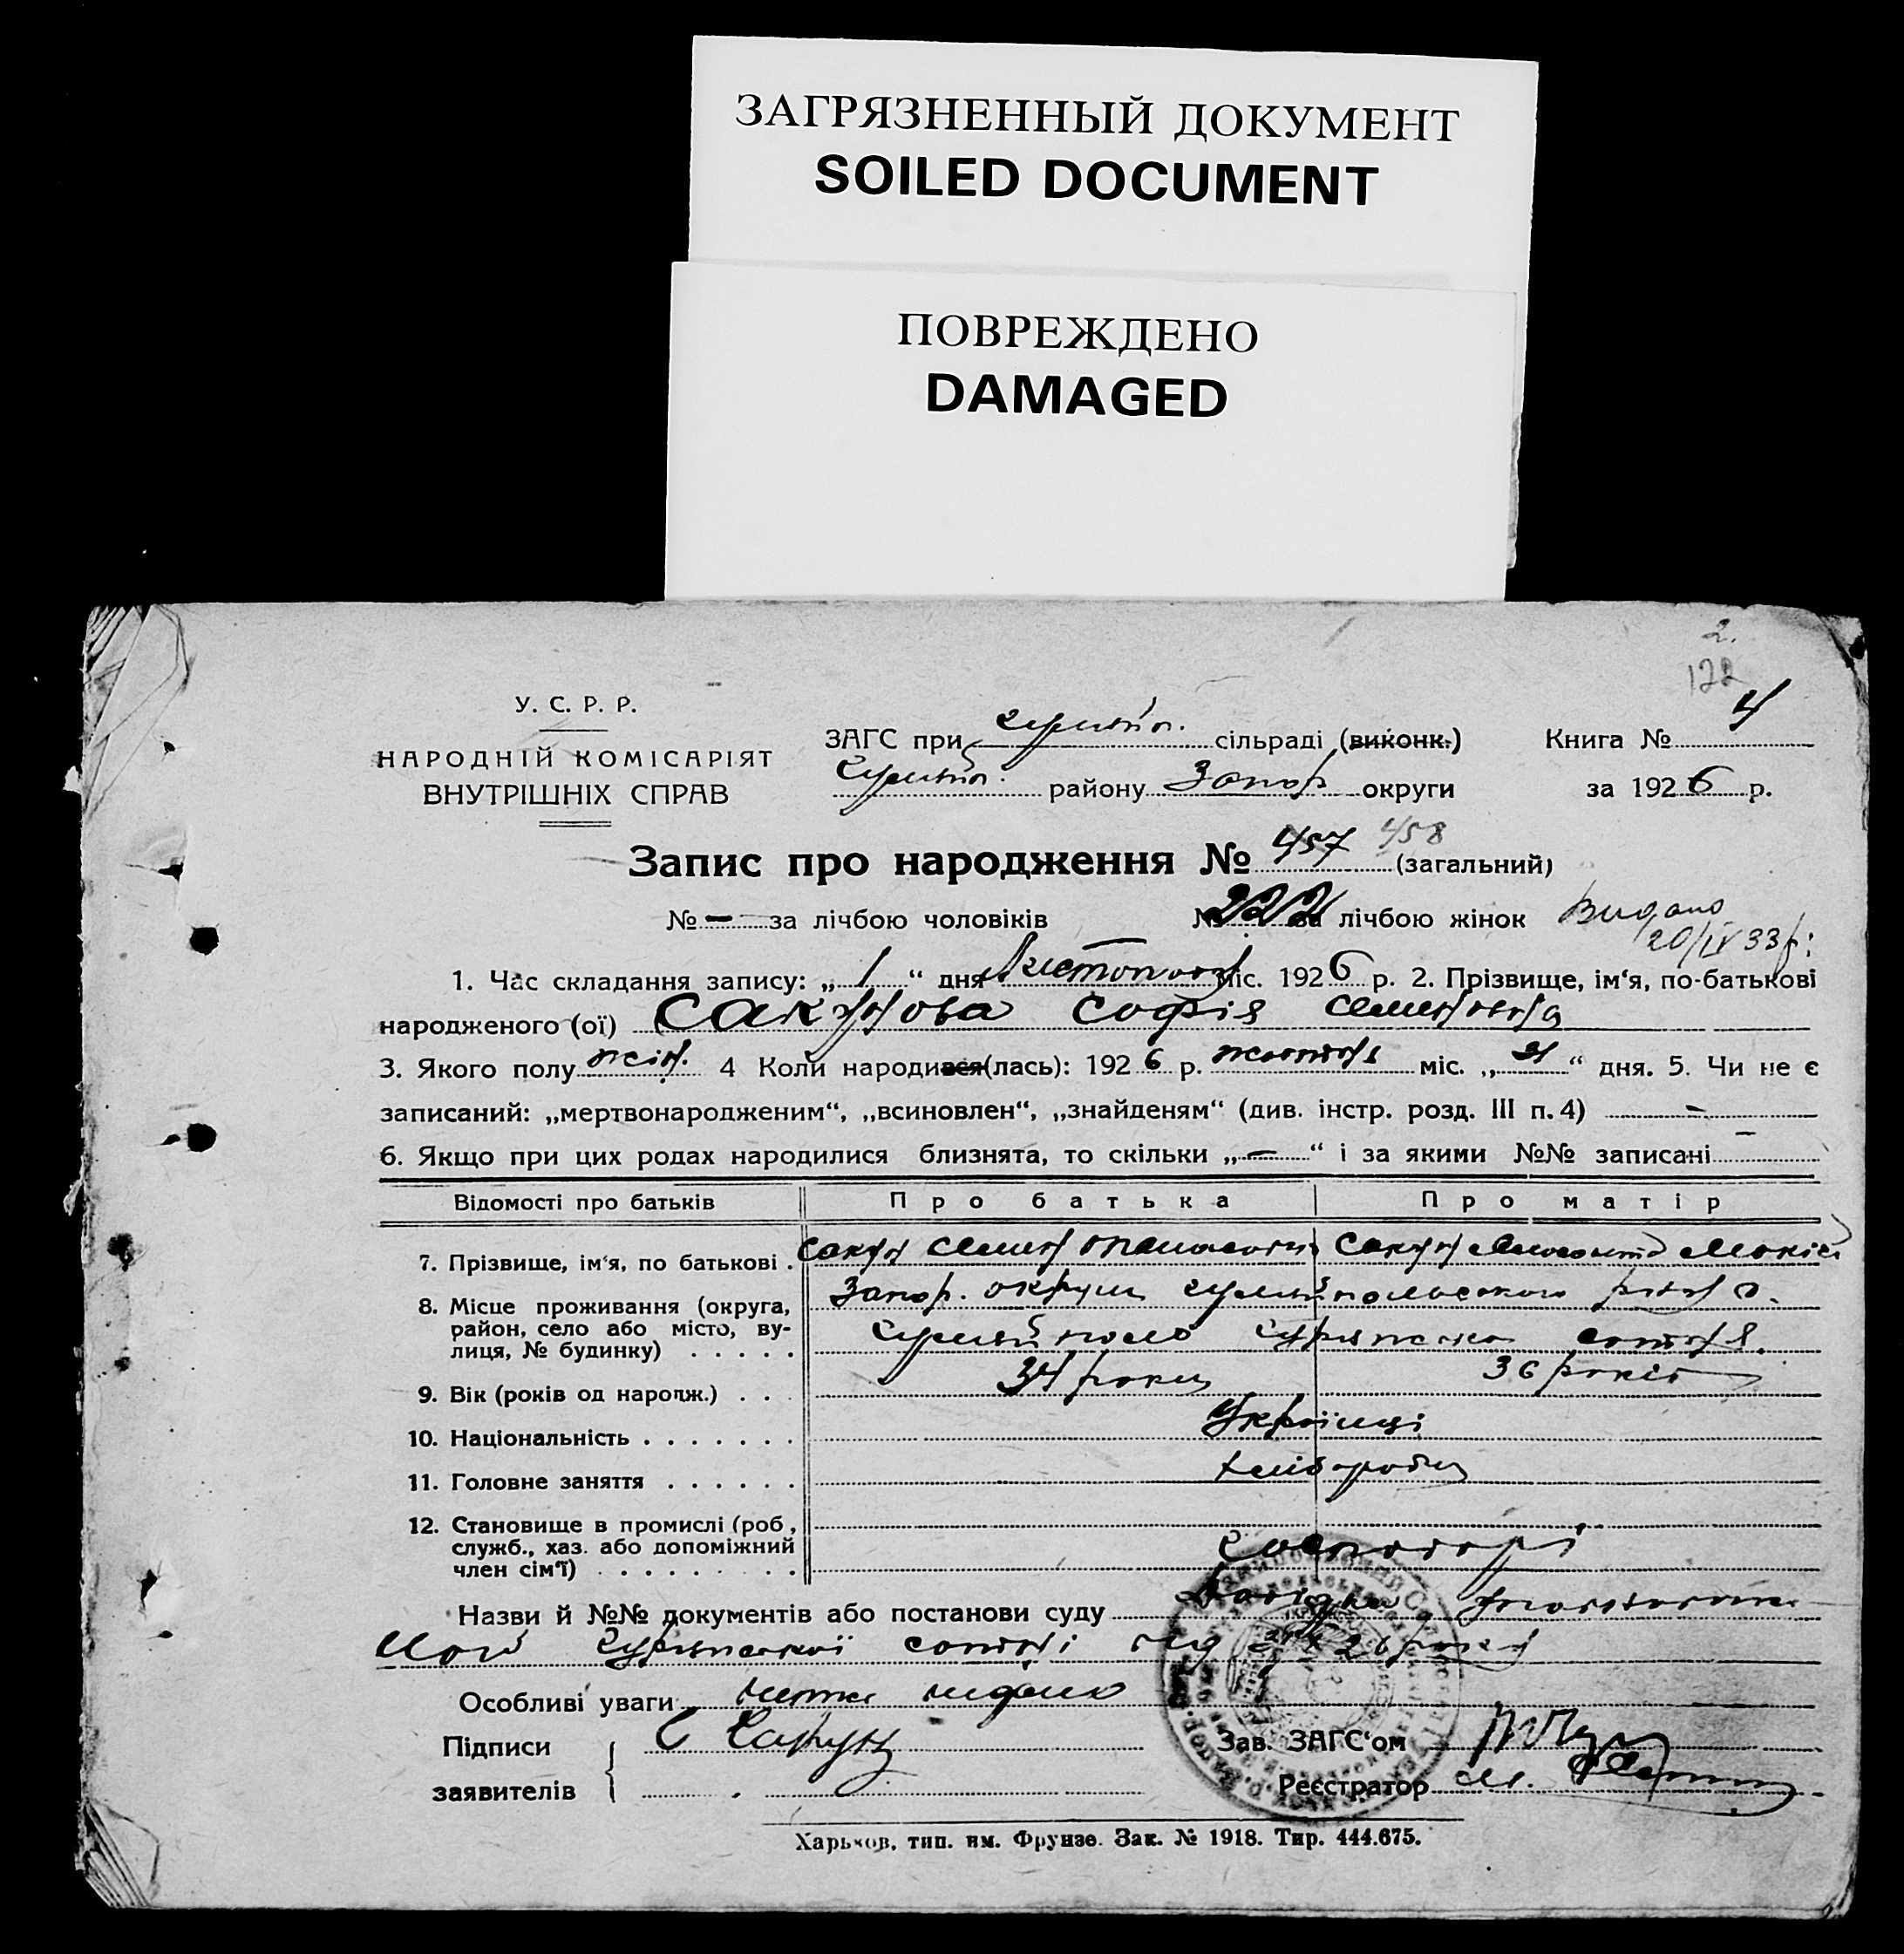 ЗАГРЯЗНЕННЫЙ ДОКУМЕНТ
SOILED DOCUMENT
ПОВРЕЖДЕНО
DAMAGED
2.
122
У. С. Р. Р.
НАРОДНІЙ КОМІСАРІЯТ
ВНУТРІШНІХ СПРАВ
ЗАГС при сільраді (виконк.)
Книга № 4
району Запор округи
за 1926 р.
Запис про народження № 457 458 (загальний)
№ — за лічбою чоловіків № 222 за лічбою жінок
Видано
20/IV 33 р.
1. Час складання запису: „ 1 “ дня Листопада міс. 1926 р. 2. Прізвище, ім‘я, по-батькові
народженого (ої) Сакунова Софія Семенівна
3. Якого полу жін. 4 Коли народився(лась): 1926 р. жовтня міс. „ 31 “ дня. 5. Чи не є
записаний: „мертвонародженим“, „всиновлен“, „знайденям“ (див. інстр. розд. III п. 4) —
6. Якщо при цих родах народилися близнята, то скільки „ — “ і за якими №№ записані —
Відомості про батьків
Про батька
Про матір
7. Прізвище, ім‘я, по батькові . Сакун Семен Сакун
8. Місце проживання (округа,
район, село або місто, ву-
лиця, № будинку) . . . . .
Запор. округи Гуляйпольського району
Гуляйполе сотня
9. Вік (років од народж.) . . . 34 роки 36 років
10. Національність . . . . . . . Українці
11. Головне заняття . . . . . . хлібороби
12. Становище в промислі (роб.,
служб., хаз. або допоміжний
член сім‘ї) . . . . . . . . .
Господарі
Назви й №№ документів або постанови суду Довідка
сотні 26 року
Особливі уваги
Підписи
заявителів
Зав. ЗАГС‘ом
Реєстратор
Харьков, тип. им. Фрунзе. Зак. № 1918. Тир. 444.675.